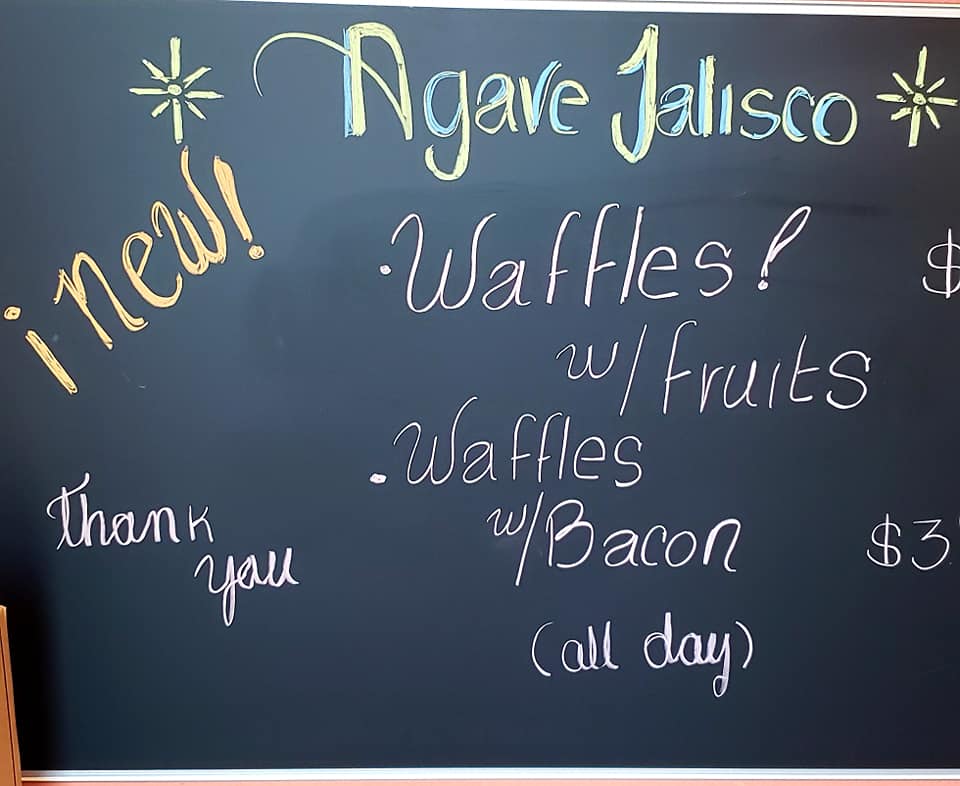 Agave Jalisco
¡new!
·Waffles! $
w/fruits
·Waffles
w/Bacon $3
(all day)
thank
you